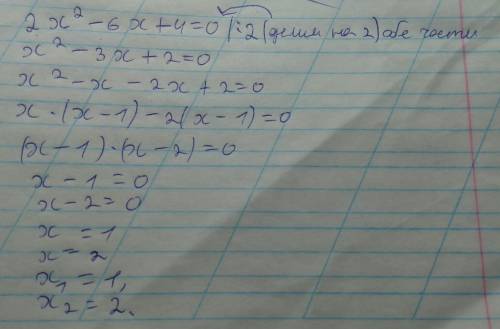 2x² - 6x + 4 = 0 |:2 (делим на 2) обе части
x² - 3x + 2 = 0
x² - x - 2x + 2 = 0
x · (x - 1) - 2(x - 1) = 0
(x - 1) · (x - 2) = 0
x - 1 = 0
x - 2 = 0
x = 1
x = 2
x₁ = 1,
x₂ = 2.